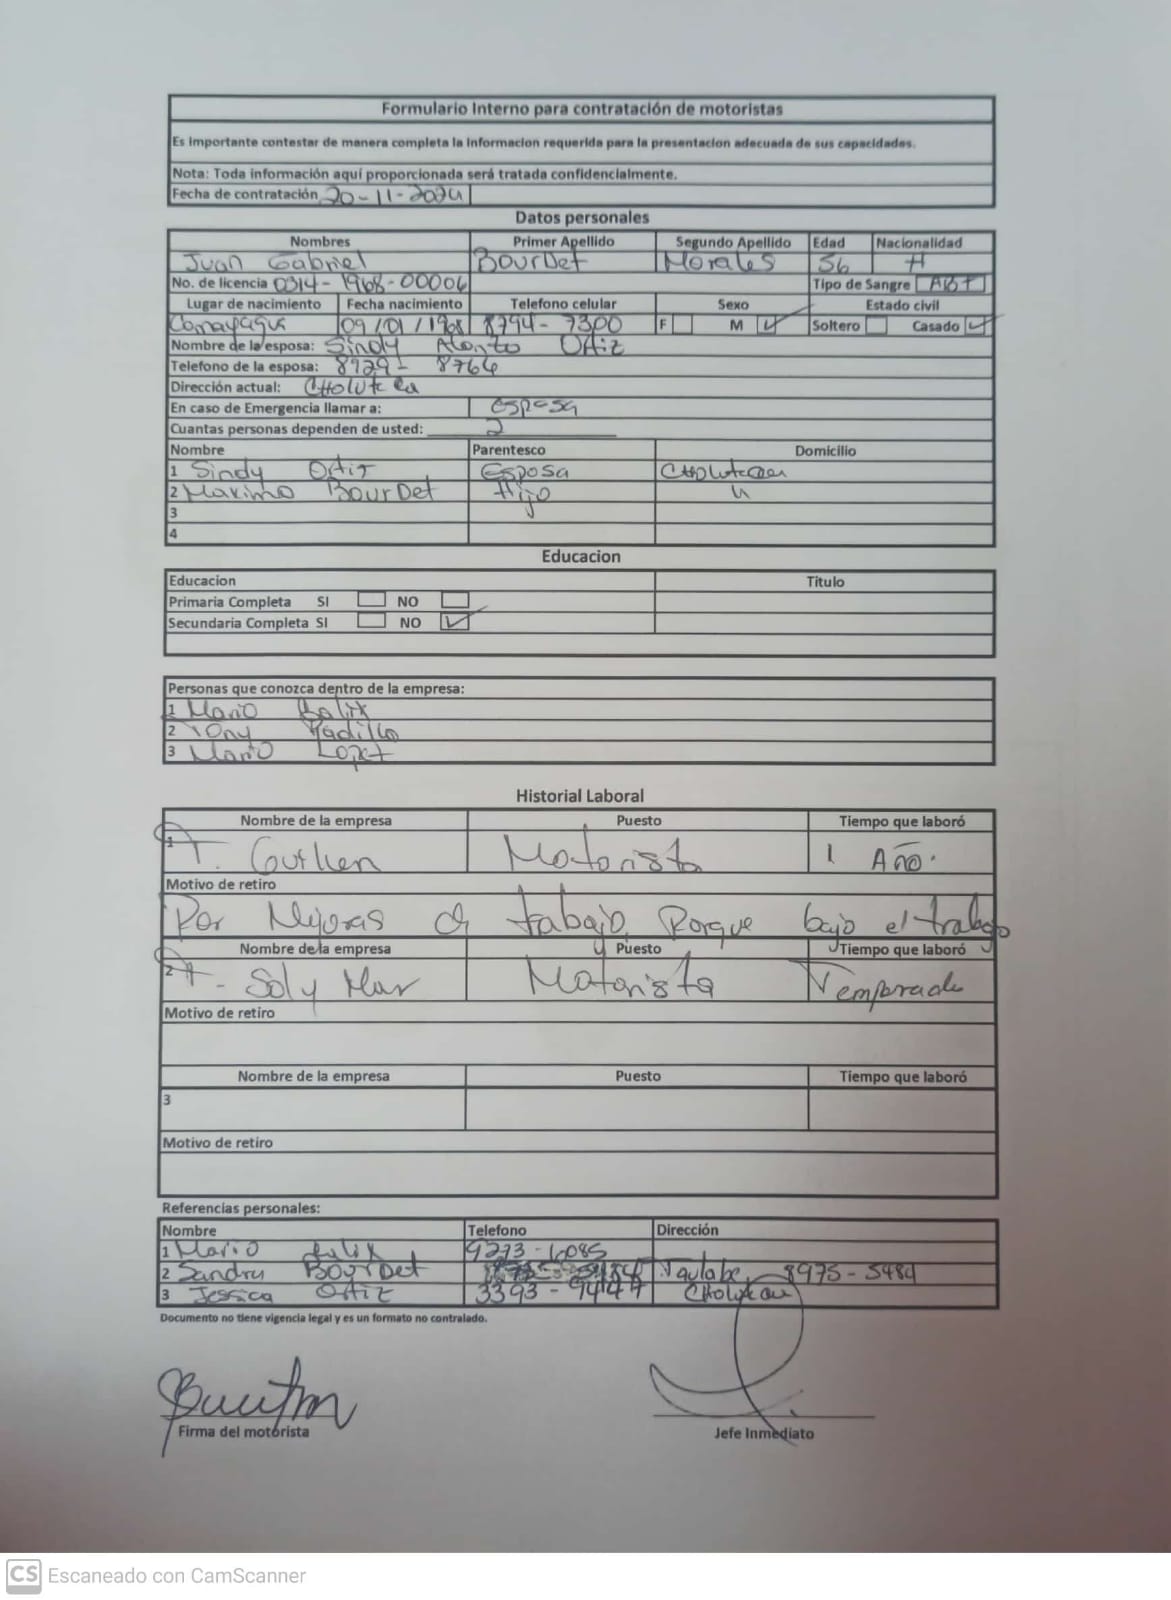 Formulario Interno para contratación de motoristas
Es importante contestar de manera completa la informacion requerida para la presentacion adecuada de sus capacidades.
Nota: Toda información aquí proporcionada será tratada confidencialmente.
Fecha de contratación 20-11-2024
Datos personales
Nombres Primer Apellido Segundo Apellido Edad Nacionalidad
Juan Gabriel BourDet Morales 56 H
No. de licencia 0314-1968-00006 Tipo de Sangre
Lugar de nacimiento Fecha nacimiento Telefono celular Sexo Estado civil
Comayagua 09/01/1968 8794-7300 F M Soltero Casado
Nombre de la esposa: Sindy Alonzo Ortiz
Telefono de la esposa: 8929- 8764
Dirección actual: CHoluteca
En caso de Emergencia llamar a: esposa
Cuantas personas dependen de usted: 2
Nombre Parentesco Domicilio
1 Sindy Ortiz Esposa
2 Maximo BourDet Hijo "
3
4
Educacion
Educacion Titulo
Primaria Completa SI NO
Secundaria Completa SI NO
Personas que conozca dentro de la empresa:
1 Mario
2 Tony Padilla
3 Mario Lopez
Historial Laboral
Nombre de la empresa Puesto Tiempo que laboró
1 T. Guillen Motorista 1 Año.
Motivo de retiro
Por Mejoras de trabajo Porque bajo el trabajo
Nombre de la empresa y Puesto Tiempo que laboró
2 T- Sol y Mar Motorista
Motivo de retiro
Nombre de la empresa Puesto Tiempo que laboró
3
Motivo de retiro
Referencias personales:
Nombre Telefono Dirección
1 Mario 9273-6085
2 Sandra BourDet Taulabe 8975-5484
3 Jessica Ortiz 3393-9444
Documento no tiene vigencia legal y es un formato no contralado.
Firma del motorista Jefe Inmediato
CS Escaneado con CamScanner